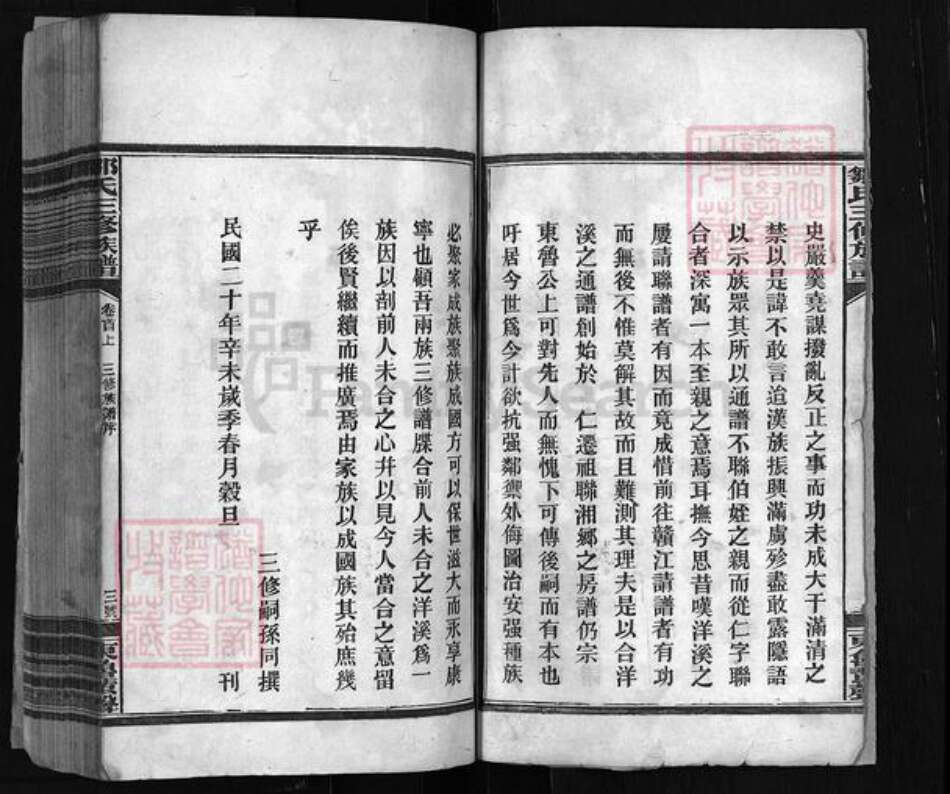 史嚴羹堯謀撥亂反正之事而功未成大干滿清之
禁以是諱不敢言迨漢族振興滿虜殄盡敢露隱語
以示族眾其所以通譜不聯伯姪之親而從仁字聯
合者深寓一本至親之意焉耳撫今思昔嘆洋溪之
屢請聯譜者有因而竟成惜前往贛江請譜者有功
而無後不惟莫解其故而且難測其理夫是以合洋
溪之通譜創始於 仁遷祖聯湘鄉之房譜仍宗
東魯公上可對先人而無愧下可傳後嗣而有本也
吁居今世爲今計欲抗强鄰禦外侮圖治安强種族
必聚家成族聚族成國方可以保世滋大而永享康
寧也顧吾兩族三修譜牒合前人未合之洋溪爲一
族因以剖前人未合之心幷以見今人當合之意留
俟後賢繼續而推廣焉由家族以成國族其殆庶幾
乎
民國二十年辛未歲季春月穀旦
三修嗣孫同撰
刊
氏三修族譜
卷首上
三修族譜序
三
FamilySearch